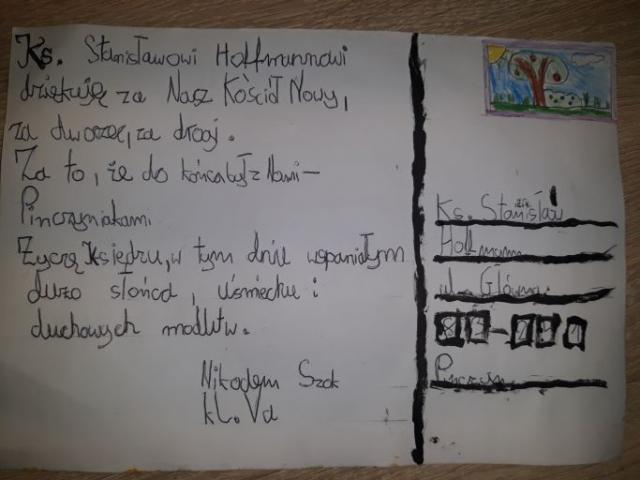 Ks. Stanisławowi Hoffmannowi
dziękuję za Nasz Kościół Nowy,
za dworzec, za drogi.
Za to, że do końca był z Nami –
Pinczyniakami.
Życzę Księdzu, w tym dniu wspaniałym
dużo słońca, uśmiechu i
duchowych modlitw.
Nikodem Szok
kl. Va
Ks. Stanisław
Hoffmann
ul. Główna
Pinczyn